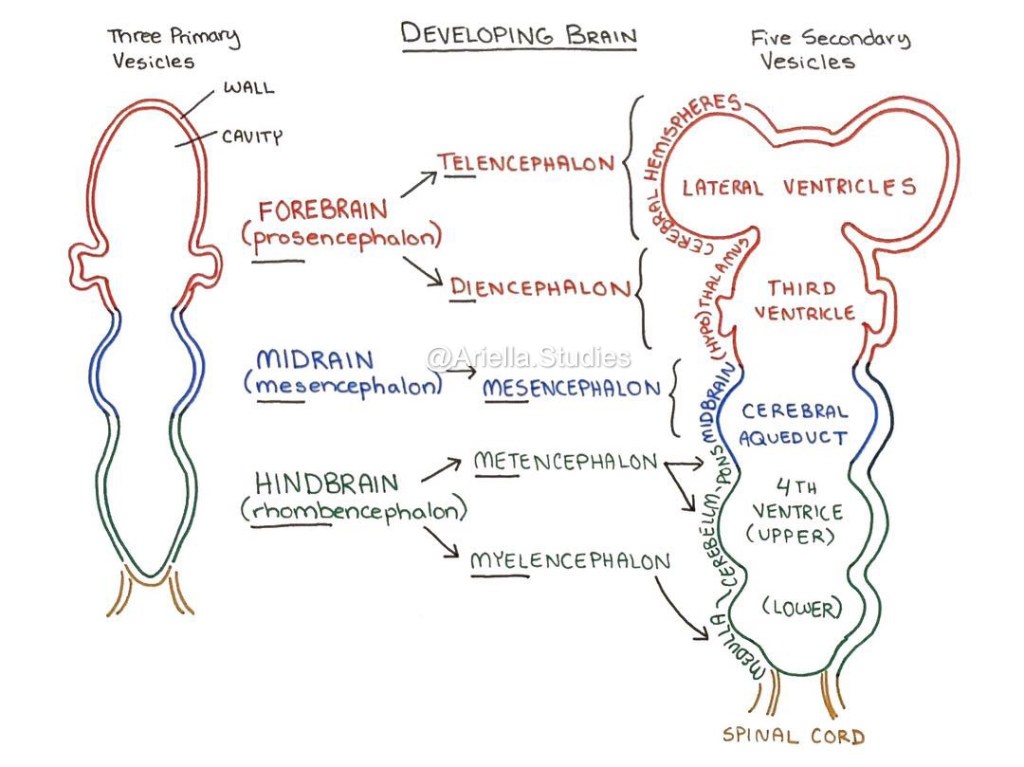 DEVELOPING BRAIN
Three Primary
Vesicles
WALL
CAVITY
FOREBRAIN
(prosencephalon)
TELENCEPHALON
DIENCEPHALON
MIDRAIN
(mesencephalon)
MESENCEPHALON
@Ariella.Studies
HINDBRAIN
(rhombencephalon)
METENCEPHALON
MYELENCEPHALON
Five Secondary
Vesicles
CEREBRAL HEMISPHERES
CEREB
LATERAL VENTRICLES
(HYPO)THALAMUS
THIRD
VENTRICLE
MIDBRAIN
CEREBRAL
AQUEDUCT
PONS
CEREBELLM
4TH
VENTRICE
(UPPER)
(LOWER)
MEDULLA
SPINAL CORD